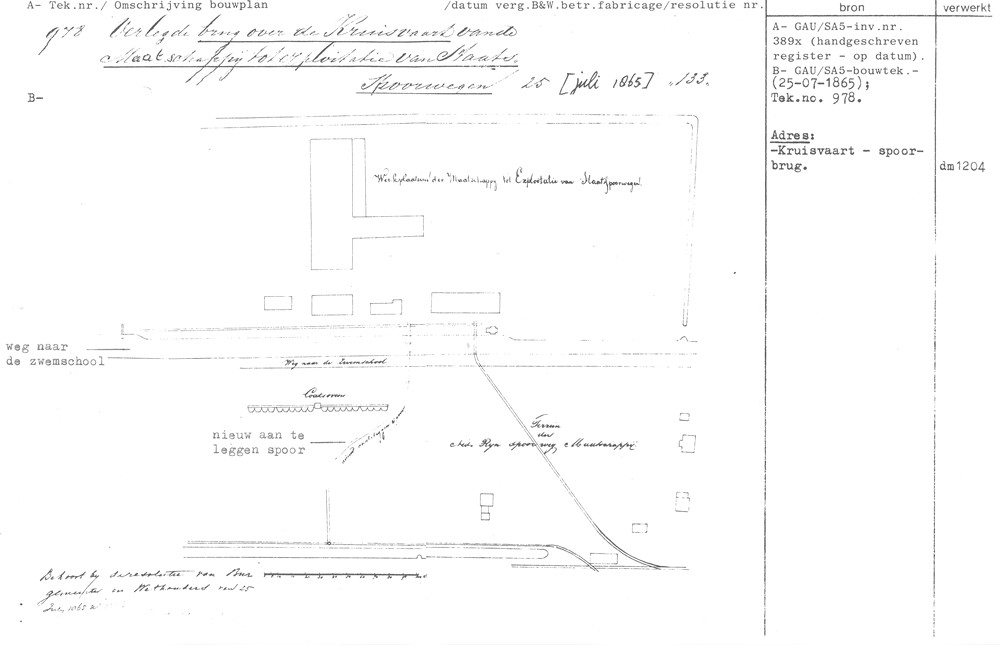 A- Tek.nr./ Omschrijving bouwplan /datum verg.B&W.betr.fabricage/resolutie nr.
bron
verwerkt
978 Verlegde brug over de Kruisvaart van de
Maatschappij tot exploitatie van Staats-
Spoorwegen 25 [juli 1865] 133.
B-
A- GAU/SA5-inv.nr.
389x (handgeschreven
register - op datum).
B- GAU/SA5-bouwtek.-
(25-07-1865);
Tek.no. 978.
Adres:
-Kruisvaart - spoor-
brug.
dm1204
Werkplaatsen der Maatschappij tot Exploitatie van Staatsspoorwegen
weg naar
de zwemschool
Weg naar de Zwemschool
Cokesoven
nieuw aan te
leggen spoor
Terrein
der
Ned. Rijn spoorweg Maatschappij
Behoort bij de resolutie van Bur-
gemeester en Wethouders van 25
July 1865